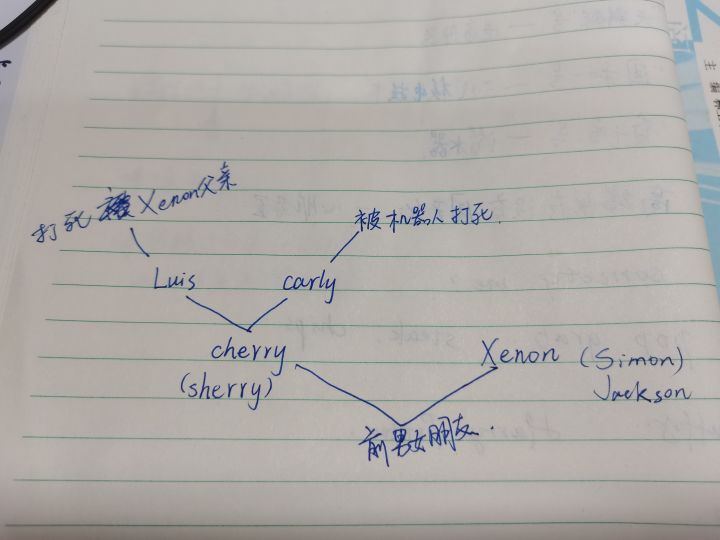 打死 Xenon父亲
被机器人打死.
Luis
carly
cherry
(sherry)
Xenon (Simon)
Jackson
前男女朋友.
主